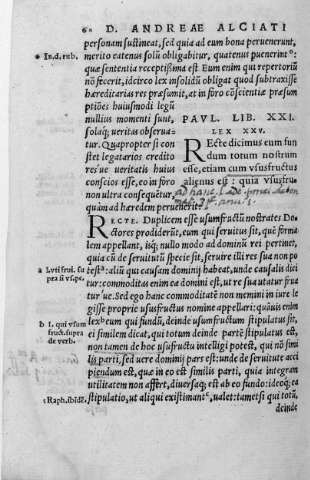 60 D. ANDREAE ALCIATI
personam sustineat, sed quia ad eum bona peruenerunt,
* In.d.rub. merito eatenus solũ obligabitur, quatenus puenerint*:
quæ sententia receptissima est Eum enim qui repertoriũ
nõ fecerit, idcirco lex insolidũ obligat quod subtraxisse
hæreditarias res præsumit, at in foro cõscientiæ præsum
ptiões huiusmodi legũ
nullius momenti sunt,
solaq; ueritas obserua-
tur. Quapropter si con
stet legatarios credito
res ue ueritatis huius
conscios esse, in foro
non ultra consequétur,
quàm ad hæredem peruenerit.
PAVL. LIB. XXI.
LEX XXV.
REcte dicimus eum fun
dum totum nostrum
esse, etiam cum ususfructus
alienus est: quia ususfru
RECTE. Duplicem esse usumfructũ nostrates Do-
ctores prodiderũt, eum qui seruitus sit, quẽ forma
lem appellant, isq; nullo modo ad dominũ rei pertinet,
quia cũ de seruitutũ specie sit, seruire illi res sua non po
a L. uti frui. su
pra si us. pe.
test: aliũ qui causam dominij habeat, unde causalis dici
tur: commoditas enim ea domini est, ut re sua utatur frua
tur ue. Sed ego hanc commoditatẽ non memini in iure le
gisse proprie ususfructus nomine appellari: quãuis enim
b l. qui usum
fruct. sup.
de verb.
lex eum qui fundũ, deinde usumfructum stipulatus sit,
ei similem dicat, qui totum deinde partẽ stipulatus est,
non tamen de hoc usufructu intelligi potest, qui nõ simi
lis parti, sed uere dominij pars est: unde de seruitute acci
piendum est, quæ in eo est similis parti, quia integram
utilitatem non affert, diuersaq; est ab eo fundo: ideoq; ea
c Raph. ibidẽ. stipulatio, ut aliqui existimant, ualet: tametsi qui totũ,
deinde